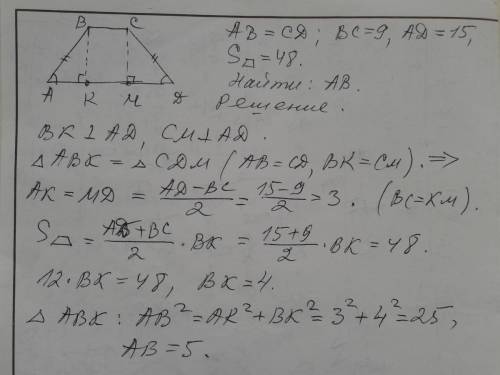 B C
A K M D
AB = CD; BC=9, AD=15,
S⏢=48.
Найти: AB.
Решение.
BK ⊥ AD, CM ⊥ AD.
△ ABK = △ CDM (AB=CD, BK=CM). =>
AK = MD = (AD-BC)/2 = (15-9)/2 = 3. (BC=KM).
S⏢ = (AD+BC)/2 · BK = (15+9)/2 · BK = 48.
12·BK=48, BK=4.
△ ABK: AB²=AK²+BK²=3²+4²=25,
AB=5.